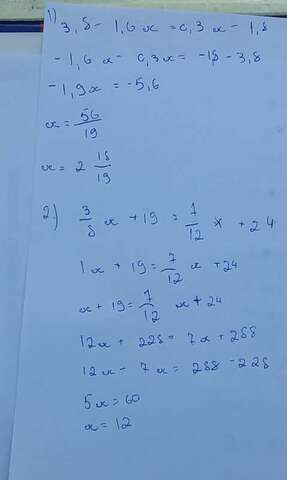 1) 3,8 - 1,6x = 0,3x - 1,8
- 1,6x - 0,3x = -1,8 - 3,8
- 1,9x = -5,6
x = 56/19
x = 2 18/19
2) 3/8 x + 19 = 7/12 x + 24
1x + 19 = 7/12 x + 24
x + 19 = 7/12 x + 24
12x + 228 = 7x + 288
12x - 7x = 288 - 228
5x = 60
x = 12